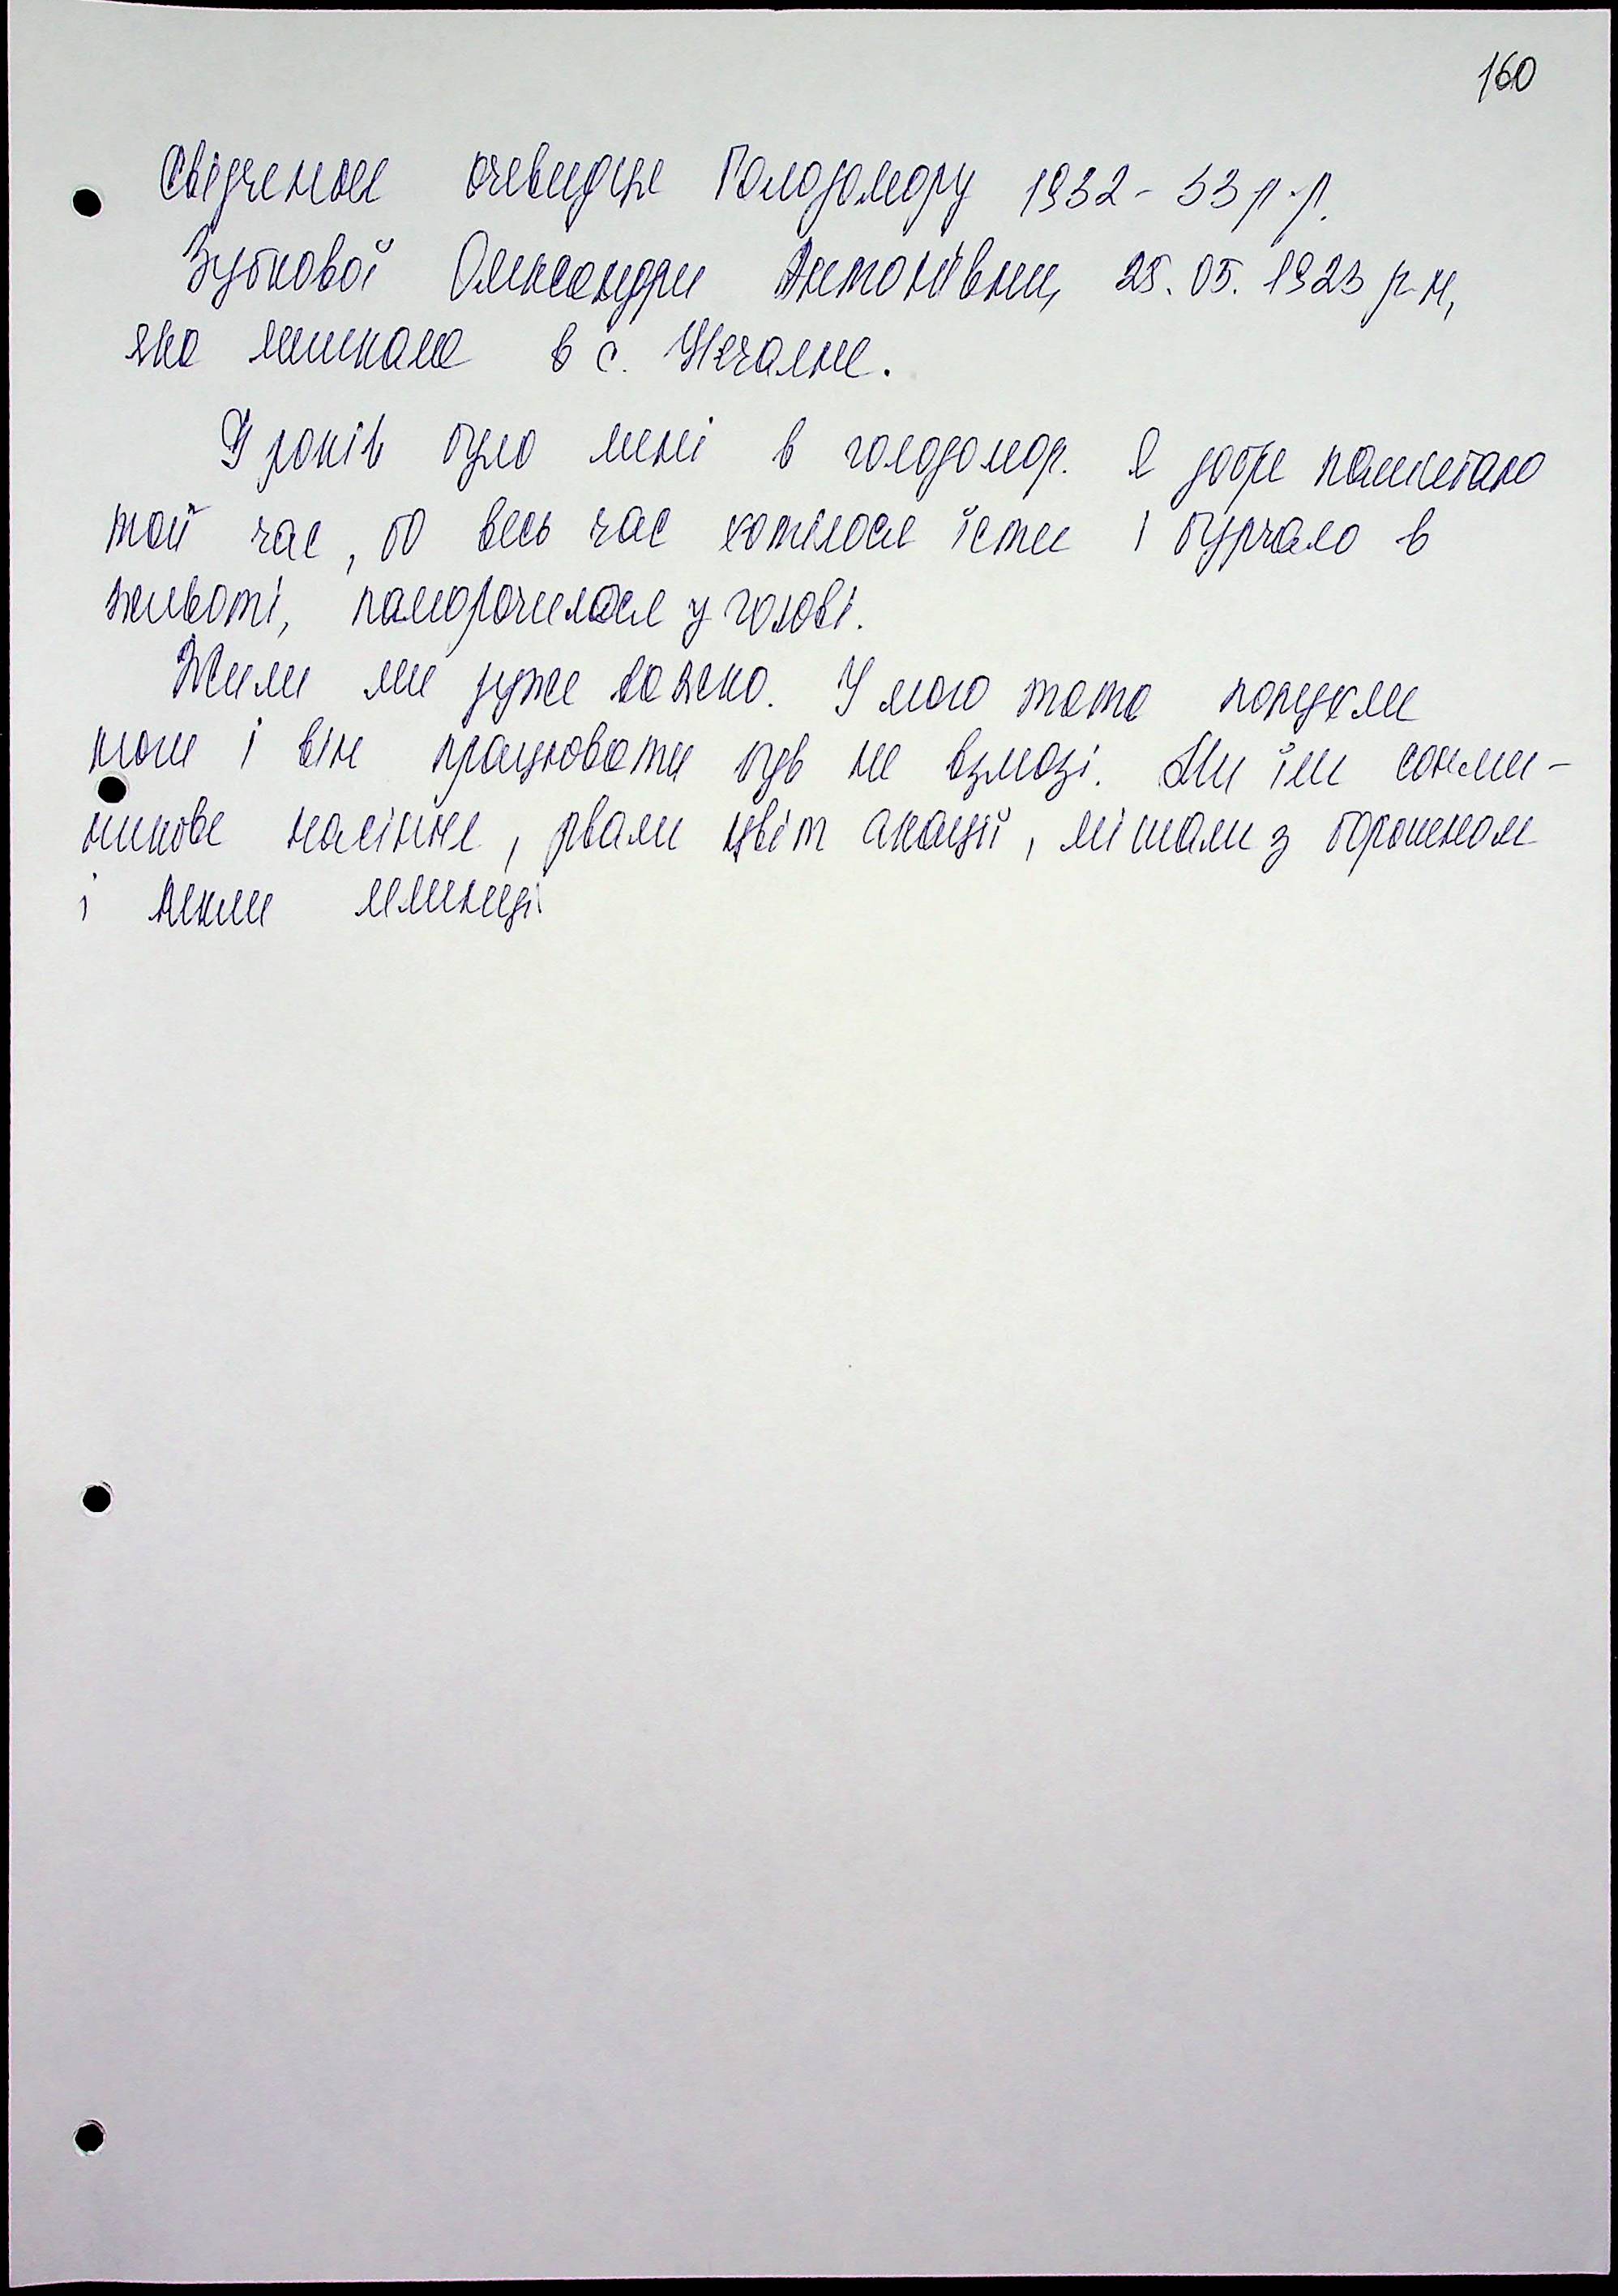 160
Свідчення очевидця Голодомору 1932-33 р.р.
Зубкової Олександри Антонівни, 25.05.1923 р.н,
яка мешкала в с. Нечаяне.
9 років було мені в голодомор. Я добре памʼятаю
той час, бо весь час хотілося їсти і бурчало в
животі, паморочилося у голові.
Жили ми дуже важко. У мого тата попухли
ноги і він працювати був не взмозі. Ми їли соняш-
никове насіння, рвали цвіт акації, мішали з борошном
і пекли млинці.